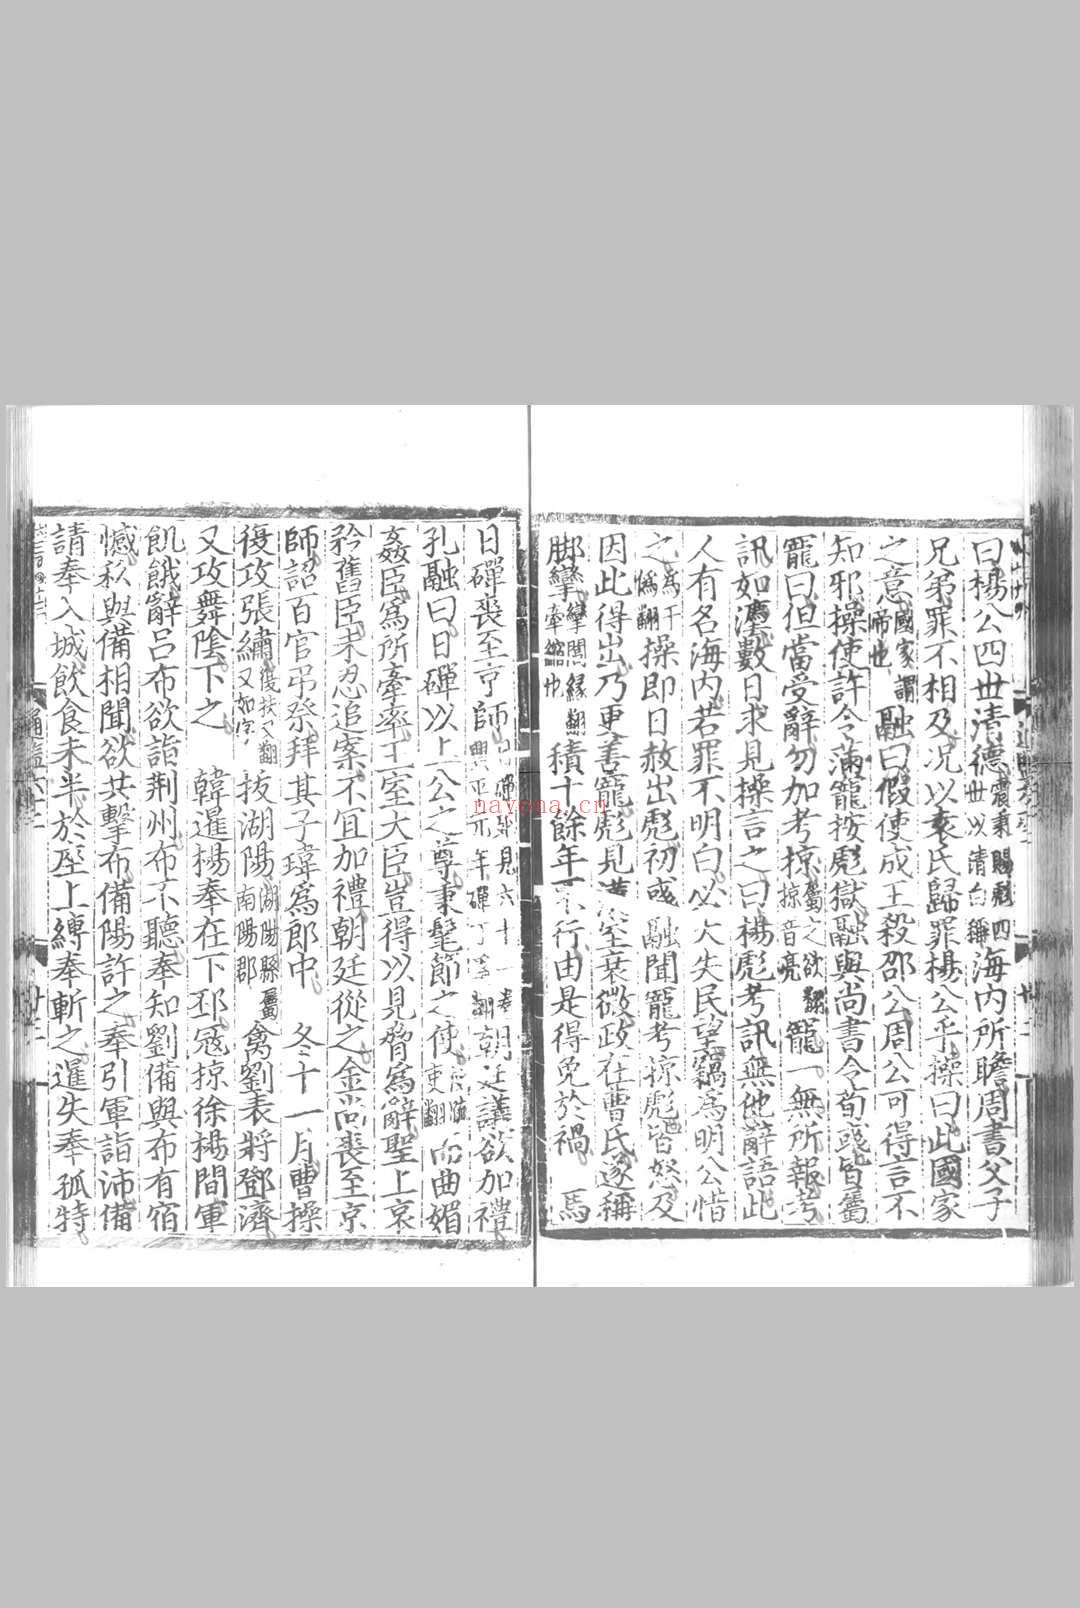 曰楊公四丗清德震秉賜彪四丗以清白稱海内所瞻周書父子
兄弟罪不相及况以袁氏歸罪楊公乎操曰此國家
之意國家謂帝也融曰假使成王殺邵公周公可得言不
知邪操使許令滿寵按彪獄融與尚書令荀彧皆屬
寵曰但當受辭勿加考掠屬之欲翻掠音亮寵一無所報考
訊如灋數日求見操言之曰楊彪考訊無他辭語此
人有名海内若罪不明白必大失民望竊爲明公惜
之爲于僞翻操即日赦出彪初彧融聞寵考掠彪皆怒及
因此得出乃更善寵彪見漢室衰微政在曹氏遂稱
脚攣攣閭緣翻牽縮也積十餘年不行由是得免於禍 馬
日磾喪至亨師日磾死見六十一卷興平元年磾丁奚翻朝廷議欲加禮
孔融曰日磾以上公之尊秉髦節之使使疏吏翻而曲媚
姦臣爲所牽率王室大臣豈得以見脅爲辭聖上哀
矜舊臣未忍追案不宜加禮朝廷從之金尚喪至京
師詔百官弔祭拜其子瑋爲郎中 冬十一月曹操
復攻張繡復扶又翻又如字拔湖陽湖陽縣屬南陽郡禽劉表將鄧濟
又攻舞陰下之 韓暹楊奉在下邳寇掠徐楊間軍
飢餓辭吕布欲詣荆州布不聽奉知劉備與布有宿
憾私與備相聞欲共擊布備陽許之奉引軍詣沛備
請奉入城飲食未半於座上縛奉斬之暹失奉孤特
通鑑六十二
nayona.cn